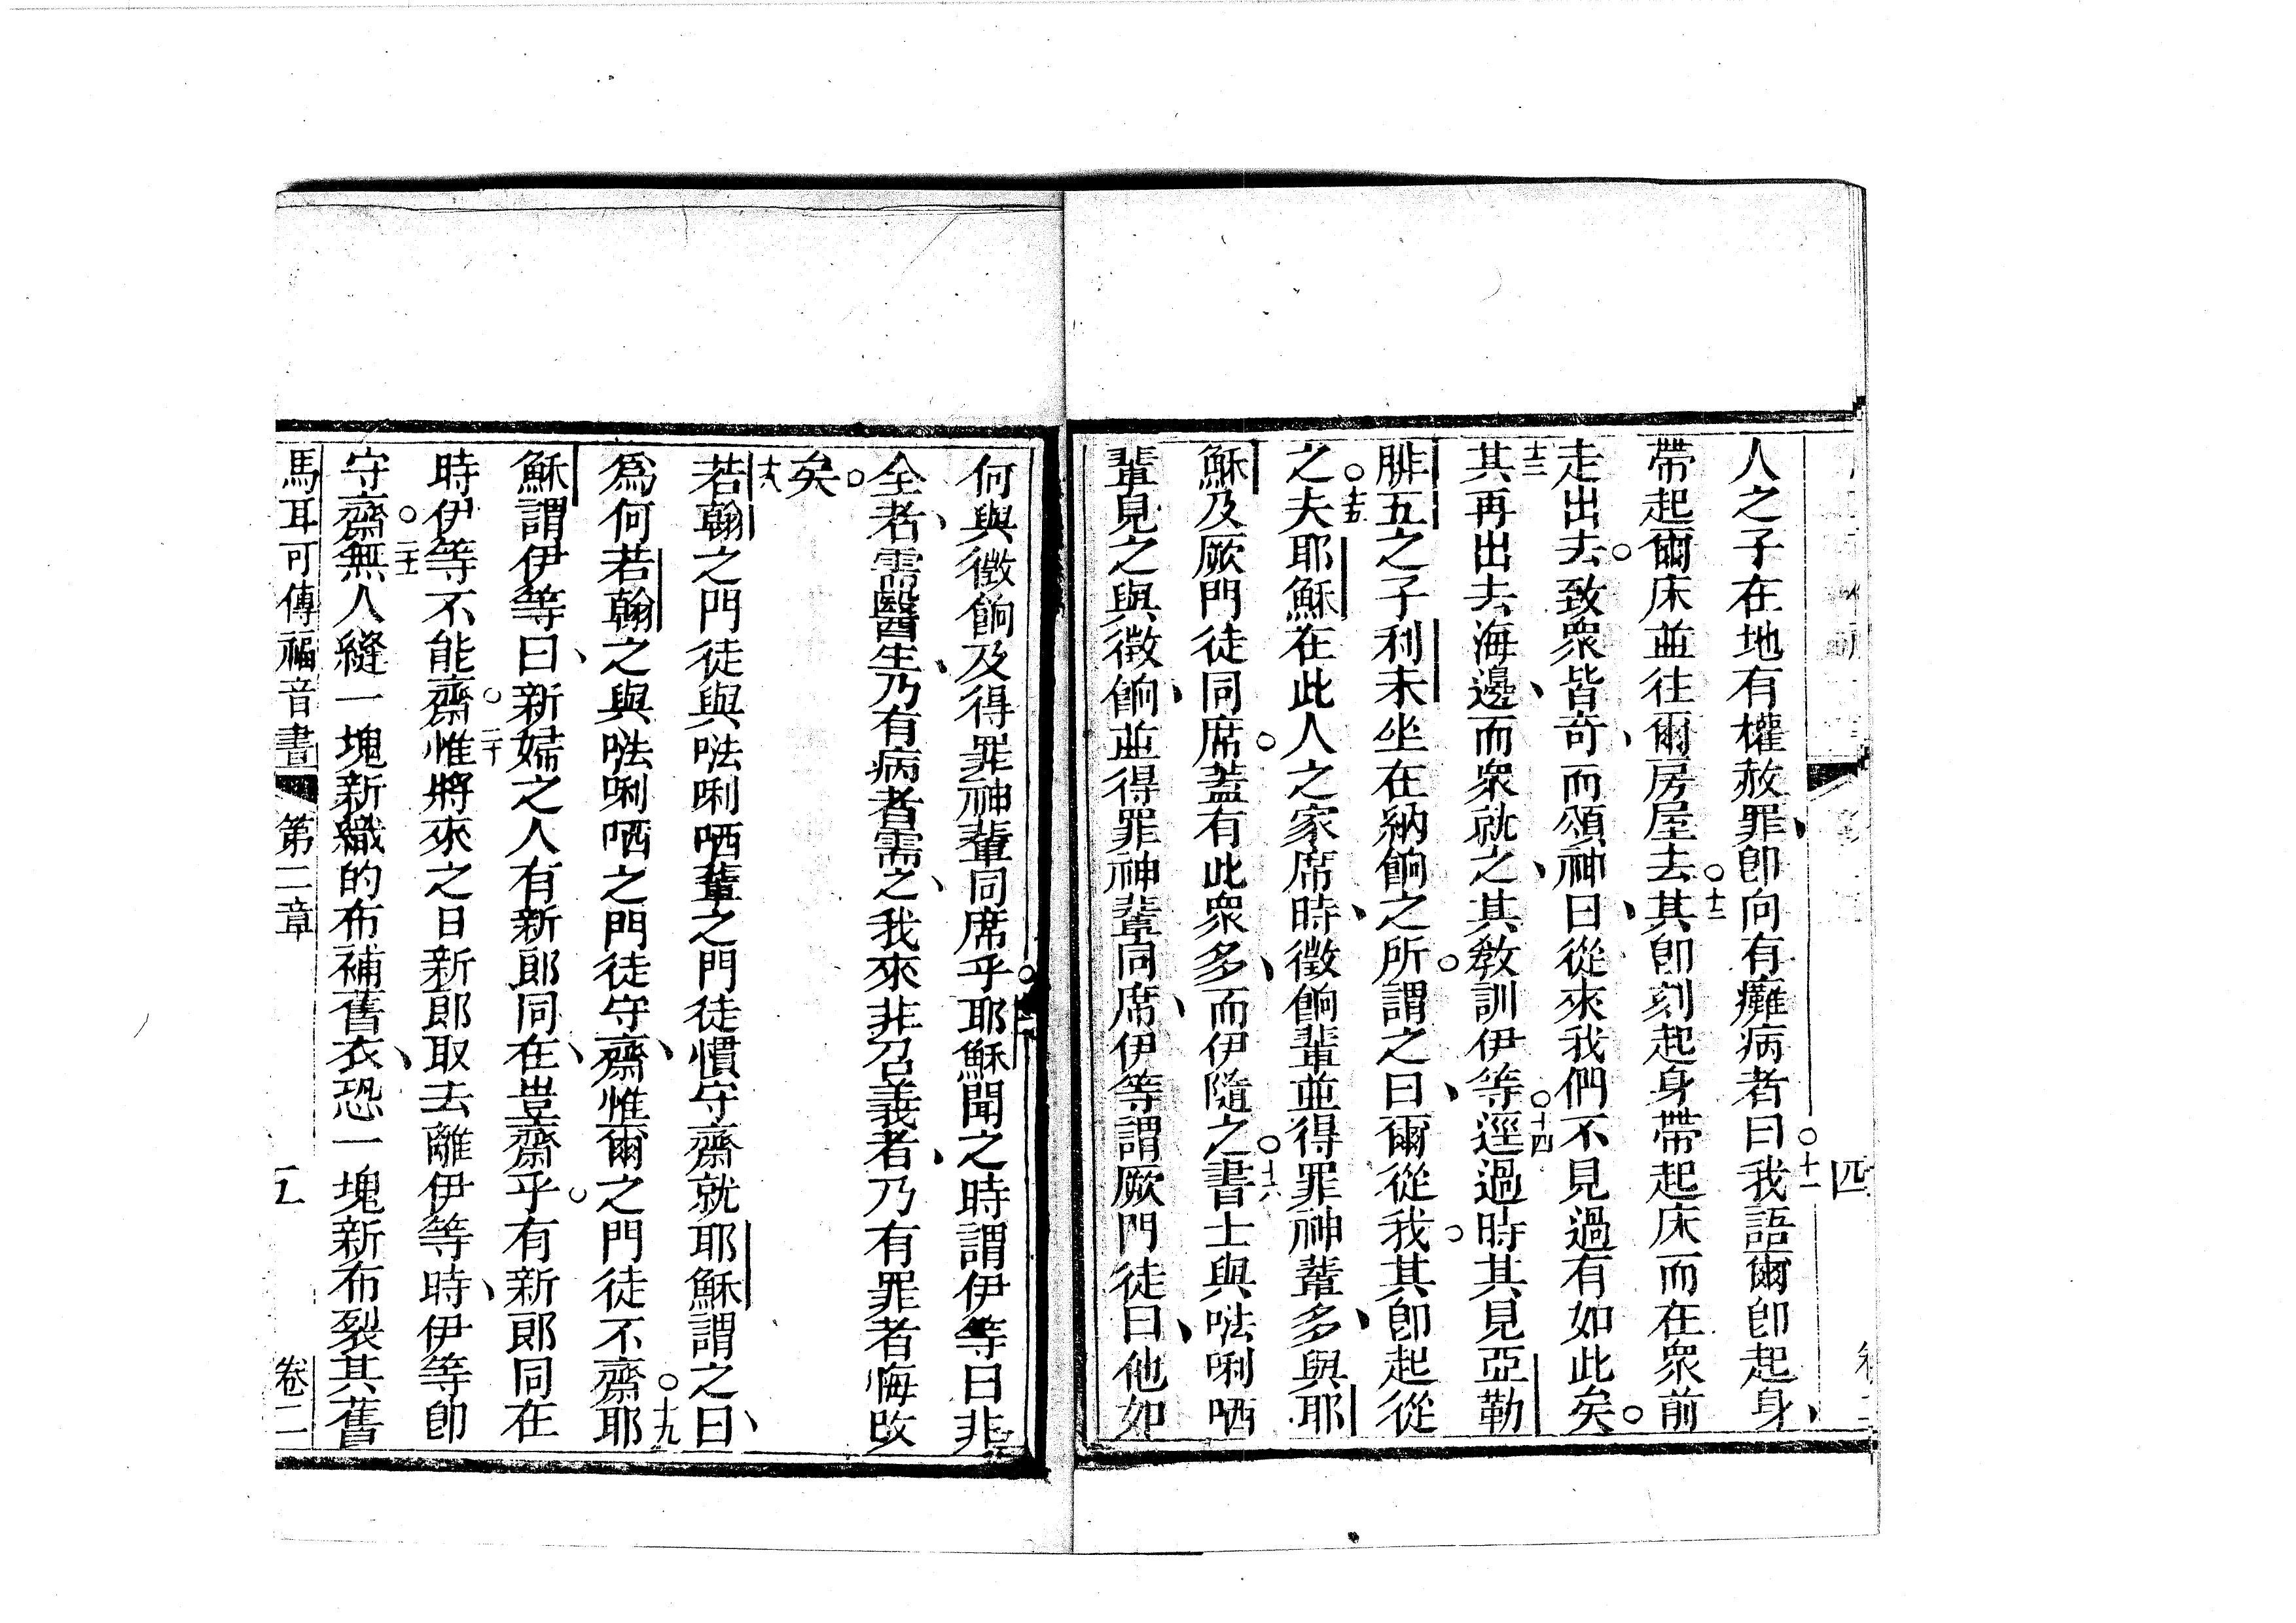 人之子在地有權赦罪、卽向有癱病者曰○十一我語爾卽起身、
帶起爾床並往爾房屋去○十二其卽刻起身帶起床而在衆前
走出去○致衆皆奇、而頌神曰、從來我們不見過有如此矣○
十三其再出去海邊、而衆就之、其敎訓伊等○十四逕過時其見亞勒
腓五之子利未坐在納餉之所○謂之曰、爾從我○其卽起從
之○十五夫耶穌在此人之家席時、徵餉輩並得罪神輩多、與耶
穌及厥門徒同席○蓋有此衆多、而伊隨之○十六書士與𠵽唎哂
輩見之與徵餉、並得罪神輩同席、伊等謂厥門徒曰、他如
四
何與徵餉及得罪神輩同席乎○耶穌聞之時謂伊等曰非
全者、需醫生、乃有病者需之、我來非召義者、乃有罪者悔改
矣○
十八若翰之門徒與𠵽唎哂輩之門徒慣守齋就耶穌謂之曰、
爲何若翰之與𠵽唎哂之門徒守齋、惟爾之門徒不齋○十九耶
穌謂伊等曰、新婦之人有新郎同在、豈齋乎○有新郎同在
時伊等不能齋○二十惟將來之日新郎取去離伊等時、伊等卽
守齋○二十一無人縫一塊新織的布補舊衣、恐一塊新布裂其舊
馬耳可傳福音書 第二章 五 卷二